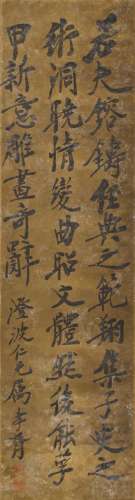 若夫鎔鑄經典之範翔集子史之
術洞曉情變曲昭文體然後能孚
甲新意雕畫奇辭
澄波仁兄屬